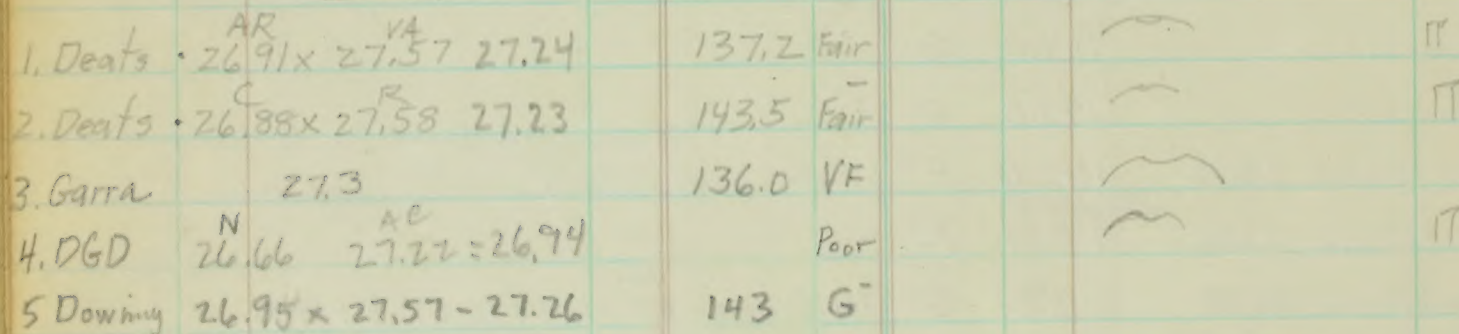 AR VA
1. Deats · 26.91 x 27.57 27.24 137.2 Fair
C R
2. Deats · 26.88 x 27.58 27.23 143.5 Fair -
3. Garra 27.3 136.0 VF
N AC
4. DGD 26.66 27.22 = 26.94 Poor
5 Downing 26.95 x 27.57 - 27.26 143 G-